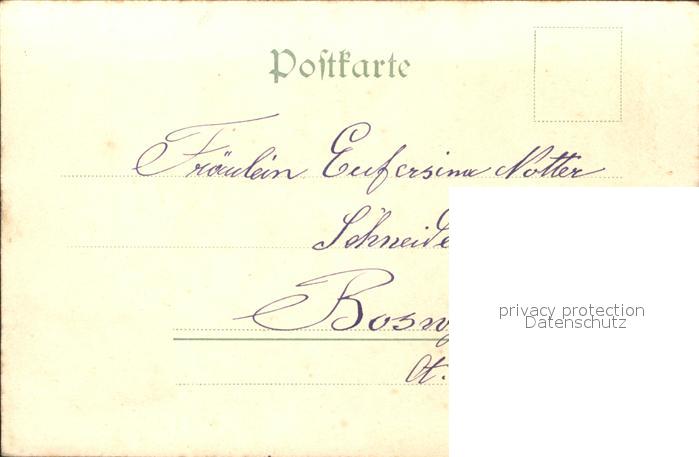 Postkarte
Fräulein Eufersina Notter
Schneide
Bosw
Ct.
privacy protection
Datenschutz